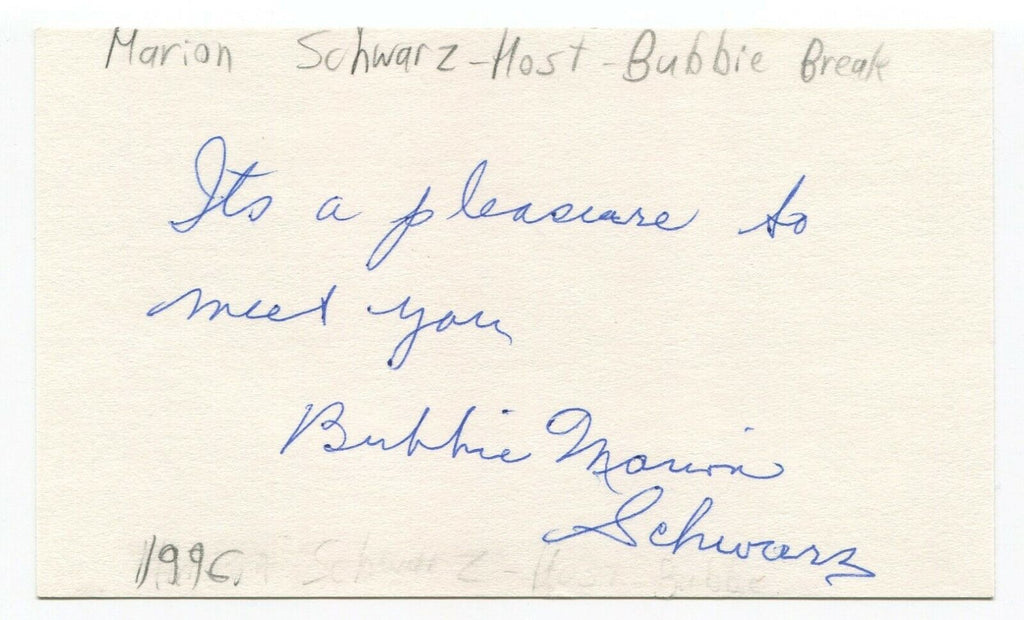 Marion Schwarz-Host-Bubbie Break
Its a pleasure to
meet you
Bubbie Marion
Schwarz
1996. Schwarz-Host-Bubbie